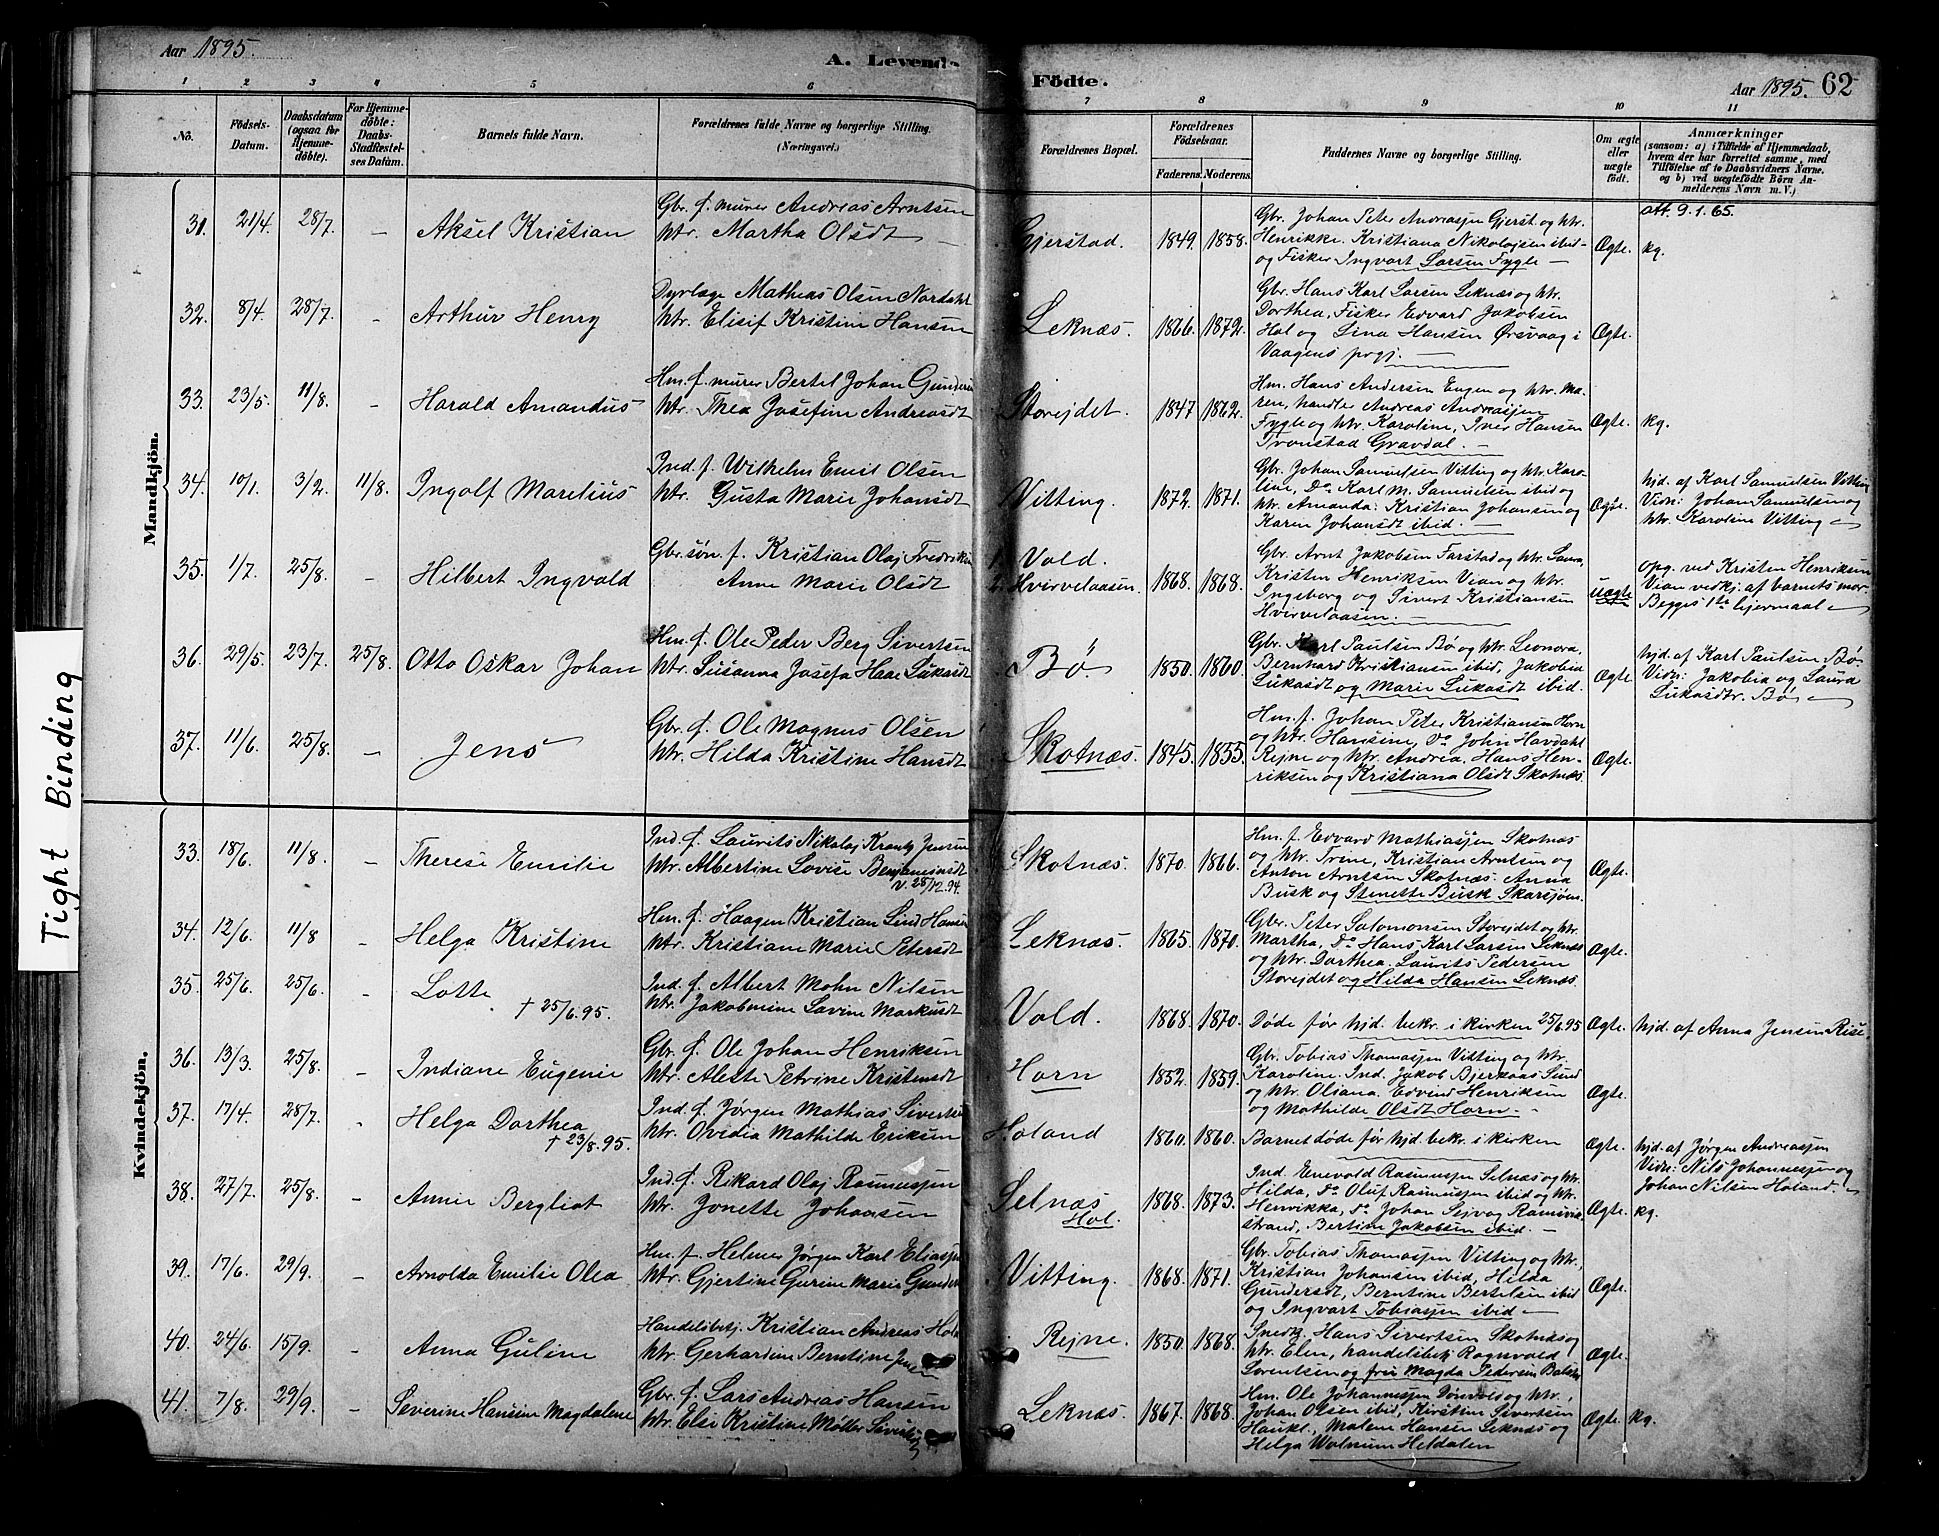 Aar 1895.
A. Levende
Födte.
Aar 1895.
62
1 2 3 4 5 6 7 8 9 10 11
No.
Födsels-
Datum.
Daabsdatum
(ogsaa for
Hjemme-
döbte).
For Hjemme-
döbte:
Daabs-
Stadfæstel-
ses Datum.
Barnets fulde Navn.
Forældrenes fulde Navne og borgerlige Stilling.
(Næringsvei.)
Forældrenes Bopæl.
Forældrenes
Födselsaar.
Faderens. Moderens.
Faddernes Navne og borgerlige Stilling.
Om ægte
eller
uægte
födt.
Anmærkninger
(saasom: a) i Tilfælde af Hjemmedaab,
hvem der har forrettet samme, med
Tilföielse af to Daabsvidners Navne,
og b) ved uægtefödte Börn An-
melderens Navn m. V.)
Tight Binding
Mandkjön.
31. 21/4 28/7. – Aksel Kristian
Gbr. f. murer Andreas Arntsen
htr. Martha Olsdt –
Gjerstad. 1849. 1858.
Gbr. Johan Peter Andreasjen Gjerst. og htr.
Henrikke. Kristiana Nikolajsen ibid –
og Fisker Ingvart Larsen Fygle –
Ægte. att. 9.1.65.
kg.
32. 8/4. 28/7. – Arthur Henry
Dyrlæge Mathias Olsen Nordahl
htr. Elisif Kristine Hansen
Leknæs. 1866. 1872.
Gbr. Hans Karl Larsen Leknæs og htr.
Dorthea, Fisker Edvard Jakobsen
Hol og Lina Hansen Ørsvaag i
Vaagens prgj. –
Ægte.
33. 23/5. 11/8. – Harald Amandus
Hm. f. murer Bertel Johan Gundersen
htr. Thea Josefine Andreasdt
Storejdet. 1847 1862.
Hm. Hans Andersen Eugen og htr. Ma-
ren, handler Andreas Andreasjen
Fygle og htr. Karoline, Iver Hansen
Tronstad Gravdal. –
Ægte. kg.
34. 10/1. 3/2. 11/8. Ingolf Marelius
Ind. f. Wilhelm Emil Olsen
htr. Gusta Marie Johansdt
Vitting. 1872. 1871.
Gbr. Johan Samuelsen Vitting og htr. Karo-
line, Do. Karl M. Samuelsen ibid og
htr. Amanda. Kristian Johansen og
Karen Johansdt ibid. –
Ægte. hjd. af Karl Samuelsen Vitting
Vidn: Johan Samuelsen og
htr. Karoline Vitting –
35. 1/7. 25/8. – Hilbert Ingvald
Gbr.søn. f. Kristian Olaj Fredriksen
Anne Marie Olsdt
1. Vold.
2. Hvirvelaasen. 1868. 1868.
Gbr. Arnt Jakobsen Farstad og htr. Laura.
Kristen Henriksen Veian og htr.
Ingeborg og Sivert Kristiansen
Hvirvelaasen. –
uægte opg. ved Kristen Henriksen
Veian vedkj. af barnets mor.
Begges 1te lejermaal –
36. 29/5. 23/7. 25/8. Otto Oskar Johan
Hm. f. Ole Peder Berg Sivertsen
htr. Susanna Josefa Haae Lukasdt
Bø. 1850. 1860.
Gbr. Karl Paulsen Bø og htr. Leonora,
Bernhard Kristiansen ibid, Jakobia
Lukasdt og Marie Lukasdt ibid.
Ægte. hjd. af Karl Paulsen Bø
Vidn: Jakobia og Laura
Lukasdtr. Bø –
37. 11/6. 25/8. – Jens
Gbr. f. Ole Magnus Olsen
htr. Hilda Kristine Hansdt
Skotnæs. 1845. 1855.
Hm. f. Johan Peter Kristiansen Horn
og htr. Hansine, Do John Havdahl
Rejne og htr. Andrea. Hans Hen-
riksen og Kristiana Olsdt Skotnæs
Ægte.
Kvindekjön.
33. 18/6. 11/8. – Therese Emilie
Ind. f. Laurits Nikolaj Krantz Jensen
htr. Albertine Lovise Benjaminsdt
v. 25/12.94.
Skotnæs. 1870. 1866.
Hm. f. Edvard Mathiasjen Skotnæs
og htr. Trine, Kristian Arntsen og
Anton Arntsen Skotnæs. Anna
Busk og Stenette Busk Skarsjøen.
Ægte.
34. 12/6. 11/8 – Helga Kristine
Hm. f. Haagen Kristian Lind Hansen
htr. Kristiane Marie Petersdt
Leknæs. 1865. 1870.
Gbr. Peter Salomonsen Storejdet og htr.
Martha, Do Hans Karl Larsen Leknæs
og htr. Dorthea. Laurits Pedersen
Storejdet og Hilda Hansen Leknæs.
Ægte.
35. 25/6. 25/6. – Lotte
† 25/6.95.
Ind. f. Albert Mohn Nilsen
htr. Jakobmine Lavine Markusdt
Vold. 1868. 1870.
Døde før hjd. bekr. i kirken 25/6.95
Ægte. hjd. af Anna Jensen Rise.
36. 13/3. 25/8. – Indiane Eugenie
Gbr. f. Ole Johan Henriksen
htr. Aleste Petrine Kristensdt
Horn 1852. 1859.
Gbr. Tobias Thomasjen Vitting og htr.
Karoline. Ind. Jakob Bjerkaas Sund
og htr. Oliana. Edvind Henriksen
og Mathilde Olsdt Horn. –
Ægte.
37. 17/4. 28/7. – Helga Dorthea
† 23/8.95.
Ind. f. Jørgen Mathias Sivertsen
htr. Ovidia Mathilde Eriksen
Holand 1860. 1860.
Barnet døde før hjd. bekr. i kirken
Ægte. hjd. af Jørgen Andreasjen
Vidn: Nils Johannesjen og
Johan Nilsen Holand. –
38. 27/7. 25/8. – Annie Bergliot
Ind. f. Rikard Olaj Rasmussjen
htr. Jonette Johansen
Selnæs
Hol. 1868. 1873.
Ind. Enevold Rasmusjen Selnæs og htr.
Hilda, Do Oluf Rasmusjen ibid og htr.
Henrikka, Do Johan Sejvag Ramsvik
strand, Bertine Jakobsen ibid. –
Ægte. kg.
39. 17/6. 29/9. – Arnolda Emilie Olea
Hm. f. Helmer Jørgen Karl Eliasjen
htr. Gjertine Gurine Marie Gunders
Vitting. 1868. 1871.
Gbr. Tobias Thomasjen Vitting og htr.,
Kristian Johansen ibid, Hilda
Gundersdt, Berntine Bertelsen ibid
og Ingvart Tobiasjen ibid –
Ægte.
40. 24/6. 15/9. – Anna Guline
Handelsbetj. Kristian Andreas Hol
htr. Gerhardine Berntine Jensen
Rejne. 1850. 1868.
Snedk. Hans Sivertsen Skotnæs og
htr. Elen, handelsbetj. Ragnvald
Lorentsen og frú Magda Pedersen
Ægte.
41. 7/8. 29/9. – Severine Hansine Magdalene
Gbr. f. Lars Andreas Hansen
htr. Else Kristine Möller Sivertsen
Leknæs. 1867. 1868.
Hm. Ole Johannesjen Dønvold og htr.,
Johan Olsen ibid, Kirstine Sivertsen
Haukl., Malene Hansen Leknæs og
Helga Walnum Heldalen
Ægte. kg.